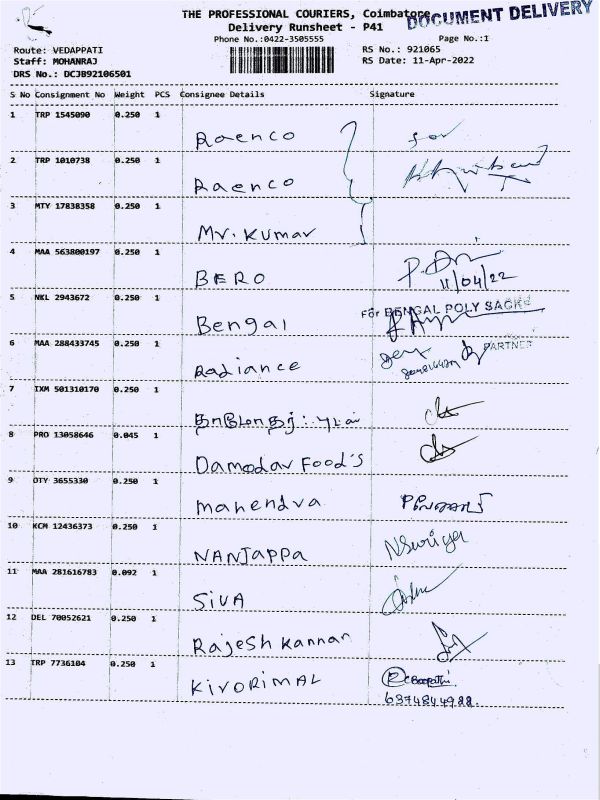 THE PROFESSIONAL COURIERS, Coimbatore
DOCUMENT DELIVERY
Delivery Runsheet - P41
Phone No.:0422-3505555
Page No.:1
Route: VEDAPPATI
RS No.: 921065
Staff: MOHANRAJ
RS Date: 11-Apr-2022
DRS No.: DCJB92106501
S No Consignment No Weight PCS Consignee Details Signature
1 TRP 1545090 0.250 1
Raenco for
2 TRP 1010738 0.250 1
Raenco
3 MTY 17838358 0.250 1
Mr. Kumar
4 MAA 563800197 0.250 1
BERO 11/04/22
5 NKL 2943672 0.250 1
For BENGAL POLY SACKS
Bengal
6 MAA 288433745 0.250 1
PARTNER
Radiance
7 IXM 501310170 0.250 1
8 PRO 13058646 0.045 1
Damodar Food's
9 OTY 3655330 0.250 1
Mahendra
10 KCM 12436373 0.250 1
NANJAPPA NSuriya
11 MAA 281616783 0.092 1
SIVA
12 DEL 70052621 0.250 1
Rajesh Kannan
13 TRP 7736104 0.250 1
KIVORIMAL
6374844988.